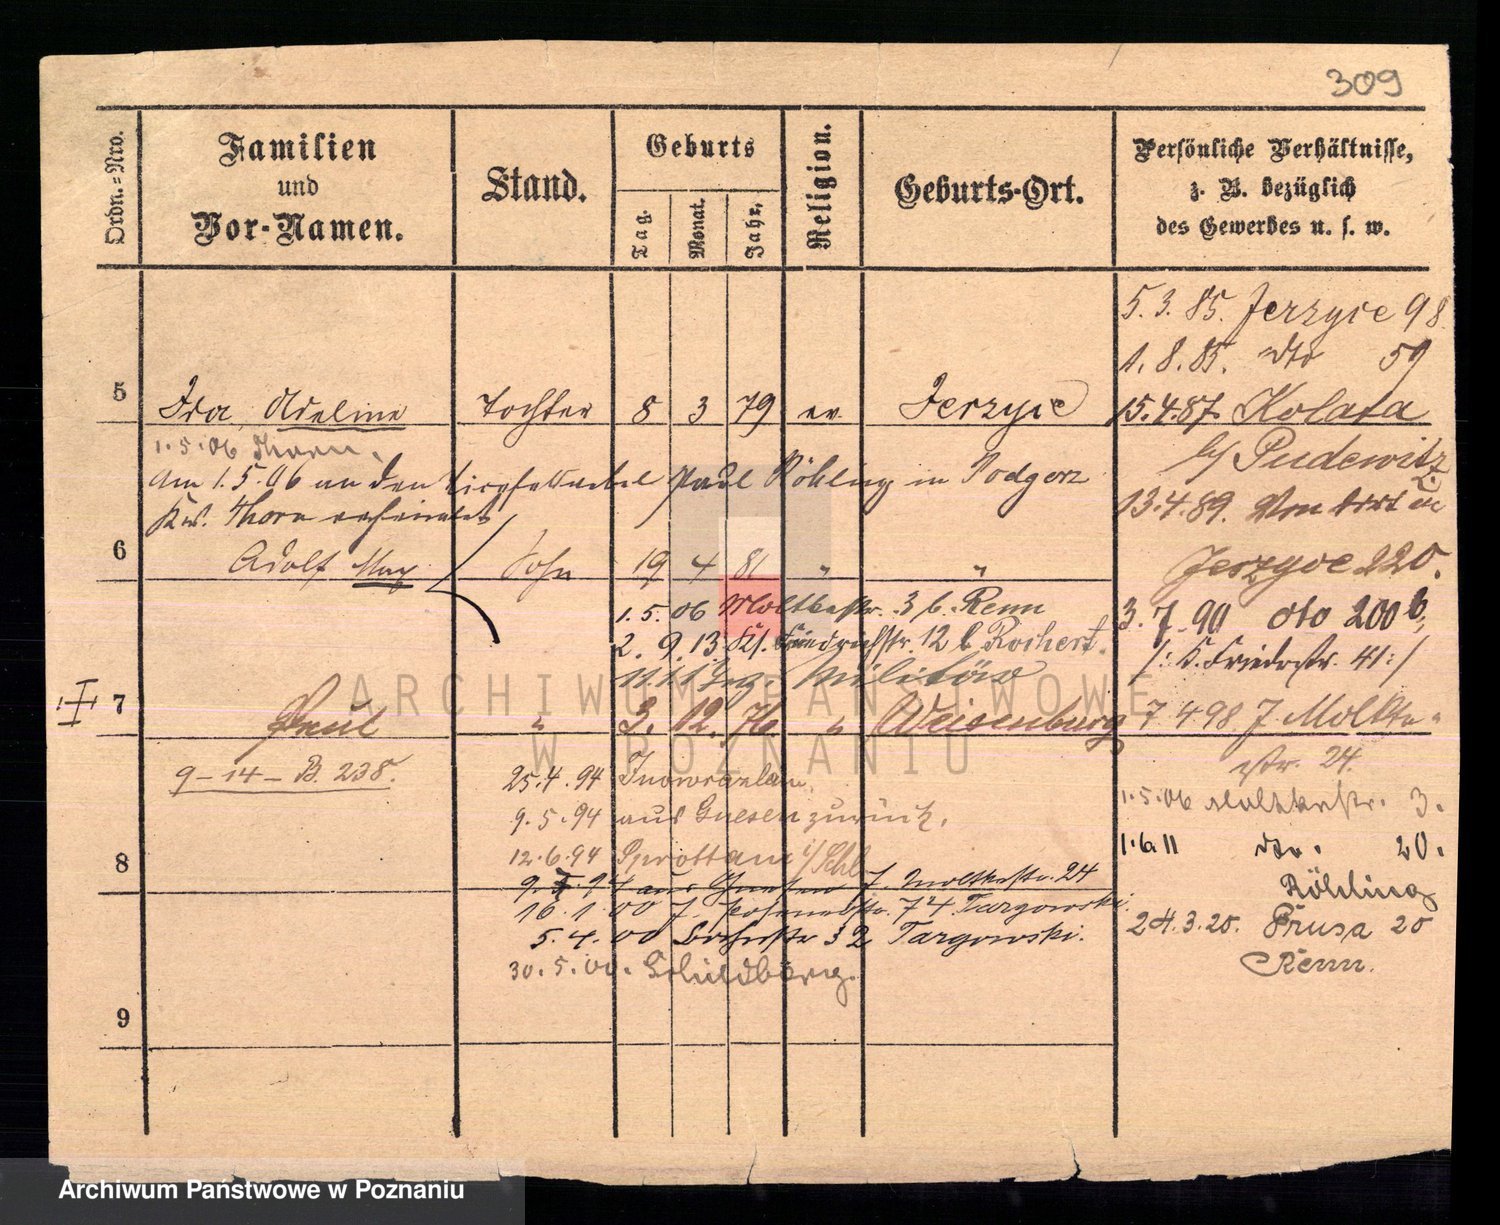 309
Ordn.=Nro.
Familien
und
Vor-Namen.
Stand.
Geburts
Tag.
Monat.
Jahr.
Religion.
Geburts-Ort.
Persönliche Verhältnisse,
z. B. bezüglich
des Gewerbes u. s. w.
5.3.85. Jerzyce 98
1.8.85. dto 59
5
Ida, Adeline Tochter 8 3 79 ev. Jerzyce
15.4.87. Kolata
b/ Pudewitz
1.5.06 Thorn.
Am 1.5.06 an den Paul Röhling in Podgorz
Krs. Thorn verheiratet
13.4.89. Von dort in
Jerzyce 220.
6
Adolf Max Sohn 19 4 81 " "
1.5.06 Moltkestr. 3 b. Renn
2.9.13 Kl. Friedrichstr. 12 b Rochert.
Militär
3.7.90 dto 200b,
/: K. Friedrstr. 41:/
I
7
Paul " 3. 12. 76. " Weisenburg
7 4 98. J. Moltke-
str. 24.
9-14-B. 238.
25.4.94 Inowrazlaw.
9.5.94 aus Gnesen zurück.
12.6.94 Sprottau i/Schl
9. . 97 aus Gnesen J. Moltkestr. 24
16.1.00 J. 74 Targowski.
5.4.00 32 Targowski.
30.5.00. Schildberg.
1.5.06 Moltkestr. 3.
1.6.11 dto. 20.
Röhling
24.3.20. Prusa 20
Renn.
8
9
ARCHIWUM PAŃSTWOWE
W POZNANIU
Archiwum Państwowe w Poznaniu